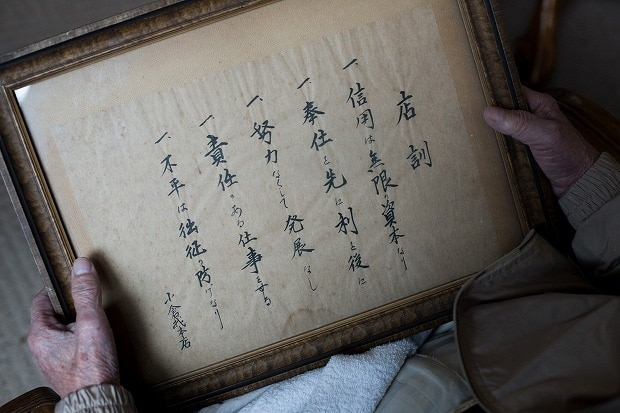 店訓
一、信用は無限の資本なり
一、奉仕を先に利を後に
一、努力なくして発展なし
一、責任のある仕事をする
一、不平は の防げなり
小倉 本店